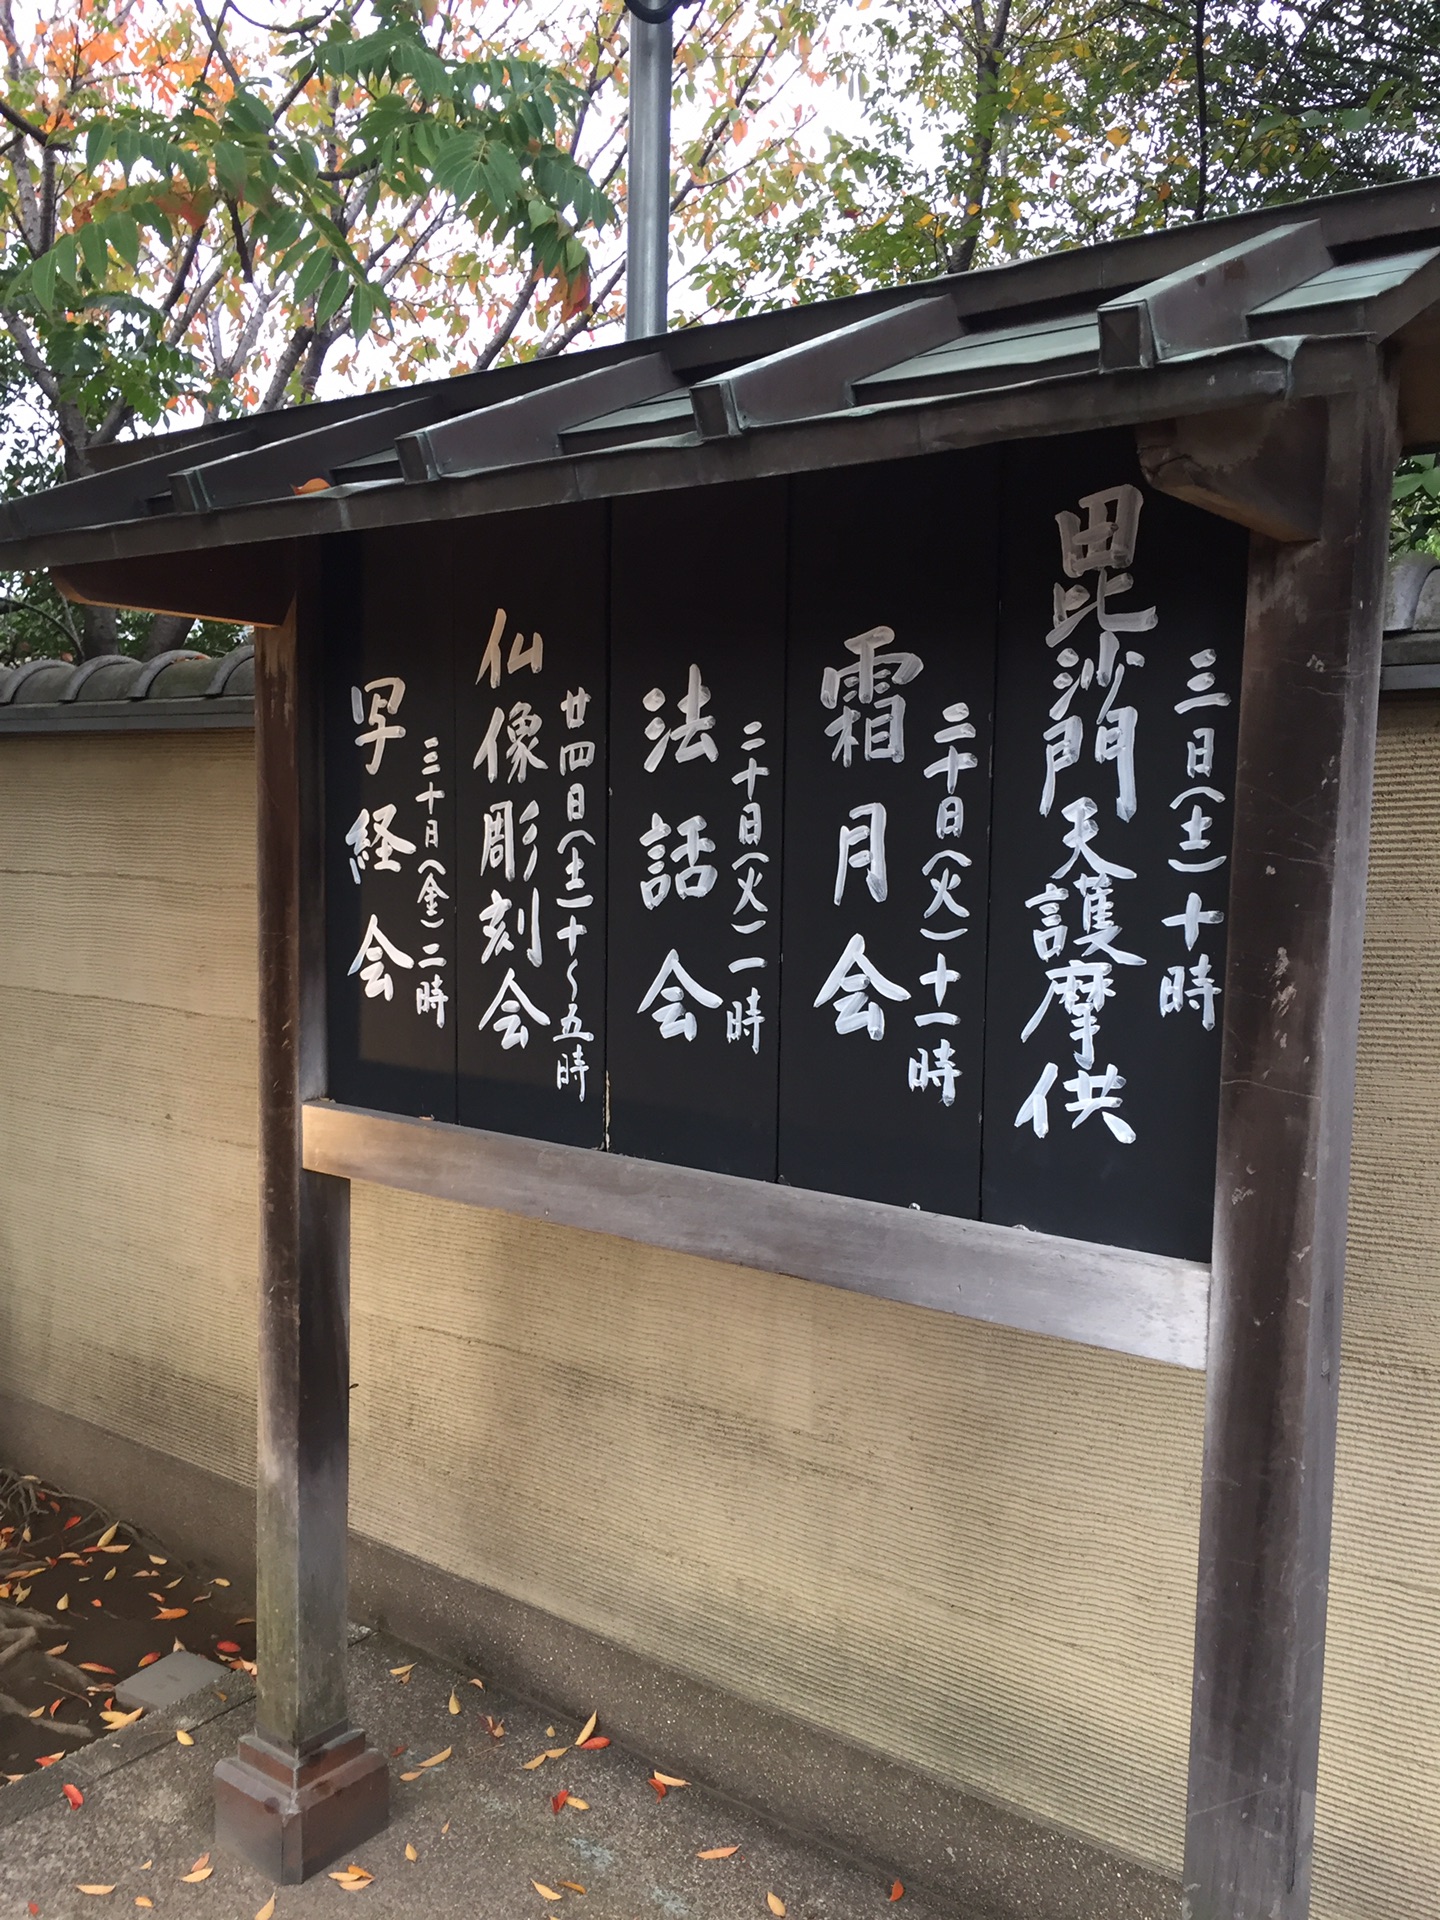 三日（土）十時
毘沙門天護摩供
二十日（火）十一時
霜月会
二十日（火）一時
法話会
廿四日（土）十〜五時
仏像彫刻会
三十日（金）二時
写経会